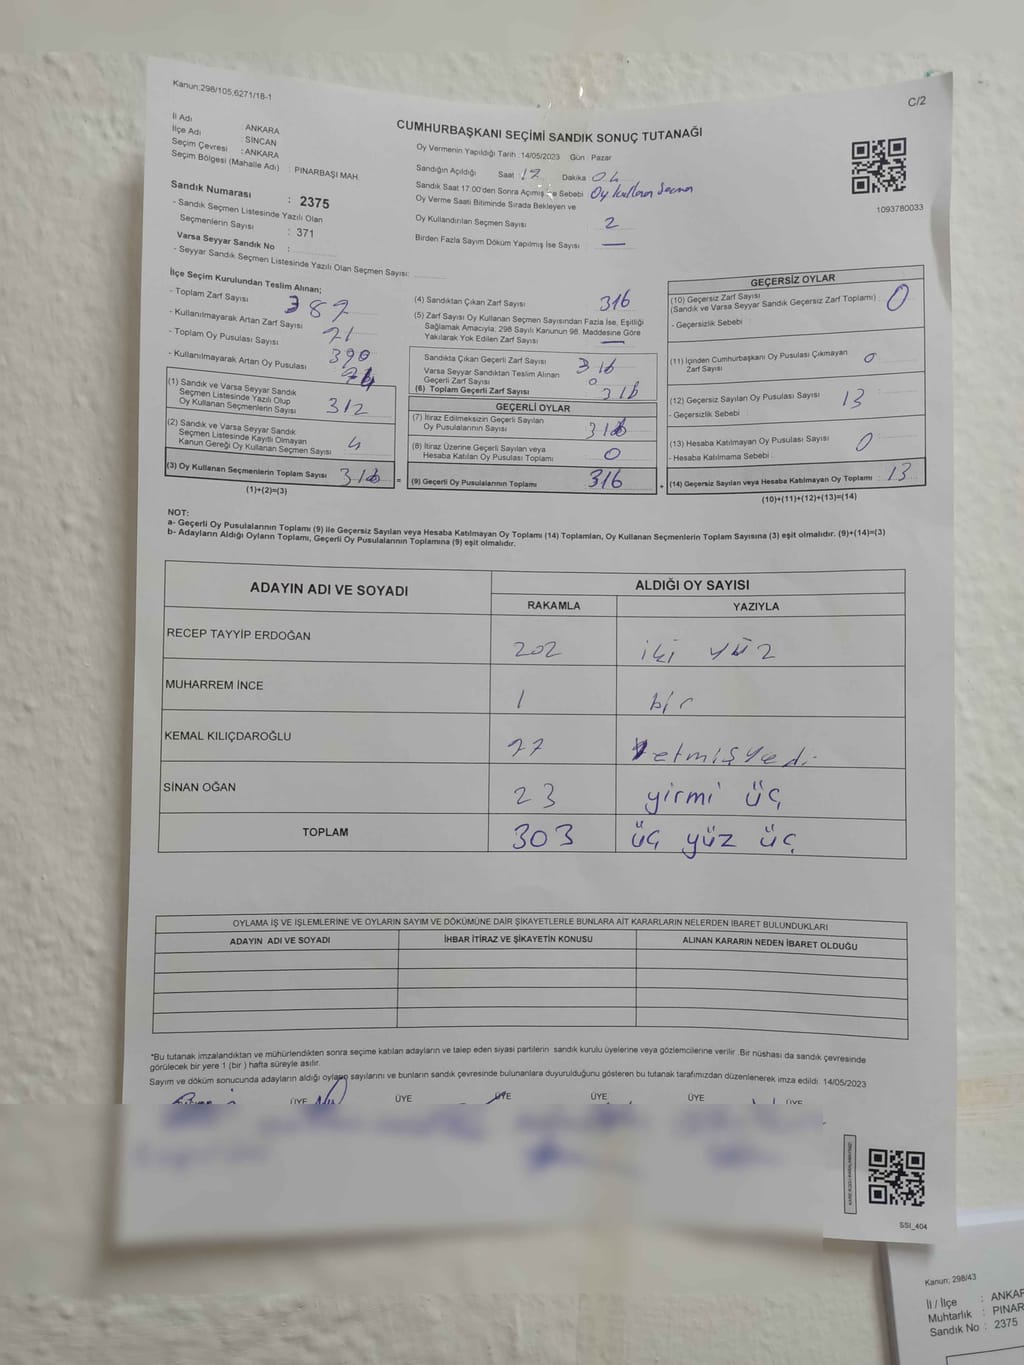 Kanun;298/105,6271/18-1
C/2
CUMHURBAŞKANI SEÇİMİ SANDIK SONUÇ TUTANAĞI
İl Adı : ANKARA
İlçe Adı : SİNCAN
Seçim Çevresi : ANKARA
Seçim Bölgesi (Mahalle Adı) : PINARBAŞI MAH.
Sandık Numarası : 2375
- Sandık Seçmen Listesinde Yazılı Olan
Seçmenlerin Sayısı : 371
Varsa Seyyar Sandık No :
- Seyyar Sandık Seçmen Listesinde Yazılı Olan Seçmen Sayısı:
Oy Vermenin Yapıldığı Tarih :14/05/2023 Gün : Pazar
Sandığın Açıldığı Saat 17 Dakika 04
Sandık Saat 17:00'den Sonra Açımış ise Sebebi Oy kullanan Seçmen
Oy Verme Saati Bitiminde Sırada Bekleyen ve
Oy Kullandırılan Seçmen Sayısı 2
Birden Fazla Sayım Döküm Yapılmış İse Sayısı —
1093780033
İlçe Seçim Kurulundan Teslim Alınan;
- Toplam Zarf Sayısı 387
- Kullanılmayarak Artan Zarf Sayısı 71
- Toplam Oy Pusulası Sayısı 390
- Kullanılmayarak Artan Oy Pusulası 74
(1) Sandık ve Varsa Seyyar Sandık
Seçmen Listesinde Yazılı Olup
Oy Kullanan Seçmenlerin Sayısı 312
(2) Sandık ve Varsa Seyyar Sandık
Seçmen Listesinde Kayıtlı Olmayan
Kanun Gereği Oy Kullanan Seçmen Sayısı 4
(3) Oy Kullanan Seçmenlerin Toplam Sayısı 316 =
(1)+(2)=(3)
(4) Sandıktan Çıkan Zarf Sayısı 316
(5) Zarf Sayısı Oy Kullanan Seçmen Sayısından Fazla İse, Eşitliği
Sağlamak Amacıyla; 298 Sayılı Kanunun 98. Maddesine Göre
Yakılarak Yok Edilen Zarf Sayısı —
Sandıkta Çıkan Geçerli Zarf Sayısı 316
Varsa Seyyar Sandıktan Teslim Alınan
Geçerli Zarf Sayısı 0
(6) Toplam Geçerli Zarf Sayısı 316
GEÇERLİ OYLAR
(7) İtiraz Edilmeksizin Geçerli Sayılan
Oy Pusulalarının Sayısı 316
(8) İtiraz Üzerine Geçerli Sayılan veya
Hesaba Katılan Oy Pusulası Toplamı 0
(9) Geçerli Oy Pusulalarının Toplamı 316 +
GEÇERSİZ OYLAR
(10) Geçersiz Zarf Sayısı
(Sandık ve Varsa Seyyar Sandık Geçersiz Zarf Toplamı) : 0
- Geçersizlik Sebebi :
(11) İçinden Cumhurbaşkanı Oy Pusulası Çıkmayan
Zarf Sayısı 0
(12) Geçersiz Sayılan Oy Pusulası Sayısı 13
- Geçersizlik Sebebi
(13) Hesaba Katılmayan Oy Pusulası Sayısı 0
- Hesaba Katılmama Sebebi :
(14) Geçersiz Sayılan veya Hesaba Katılmayan Oy Toplamı : 13
(10)+(11)+(12)+(13)=(14)
NOT:
a- Geçerli Oy Pusulalarının Toplamı (9) ile Geçersiz Sayılan veya Hesaba Katılmayan Oy Toplamı (14) Toplamları, Oy Kullanan Seçmenlerin Toplam Sayısına (3) eşit olmalıdır. (9)+(14)=(3)
b- Adayların Aldığı Oyların Toplamı, Geçerli Oy Pusulalarının Toplamına (9) eşit olmalıdır.
ADAYIN ADI VE SOYADI ALDIĞI OY SAYISI
RAKAMLA YAZIYLA
RECEP TAYYİP ERDOĞAN 202 iki yüz
MUHARREM İNCE 1 bir
KEMAL KILIÇDAROĞLU 77 Yetmişyedi
SİNAN OĞAN 23 yirmi üç
TOPLAM 303 üç yüz üç
OYLAMA İŞ VE İŞLEMLERİNE VE OYLARIN SAYIM VE DÖKÜMÜNE DAİR ŞİKAYETLERLE BUNLARA AİT KARARLARIN NELERDEN İBARET BULUNDUKLARI
ADAYIN ADI VE SOYADI İHBAR İTİRAZ VE ŞİKAYETİN KONUSU ALINAN KARARIN NEDEN İBARET OLDUĞU
*Bu tutanak imzalandıktan ve mühürlendikten sonra seçime katılan adayların ve talep eden siyasi partilerin sandık kurulu üyelerine veya gözlemcilerine verilir .Bir nüshası da sandık çevresinde
görülecek bir yere 1 (bir ) hafta süreyle asılır.
Sayım ve döküm sonucunda adayların aldığı oyların sayılarını ve bunların sandık çevresinde bulunanlara duyurulduğunu gösteren bu tutanak tarafımızdan düzenlenerek imza edildi. 14/05/2023
ÜYE ÜYE ÜYE ÜYE ÜYE ÜYE
SSI_404
Kanun; 298/43
İl / İlçe : ANKAR
Muhtarlık : PINAR
Sandık No : 2375